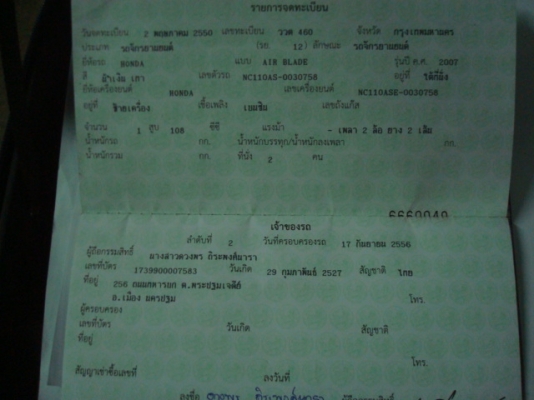 รายการจดทะเบียน
วันจดทะเบียน 2 พฤษภาคม 2550 เลขทะเบียน ววต 460 จังหวัด กรุงเทพมหานคร
ประเภท รถจักรยานยนต์ (รย. 12) ลักษณะ รถจักรยานยนต์
ยี่ห้อรถ HONDA แบบ AIR BLADE รุ่นปี ค.ศ. 2007
สี เทา เลขตัวรถ NC110AS-0030758 อยู่ที่
ยี่ห้อเครื่องยนต์ HONDA เลขเครื่องยนต์ NC110ASE-0030758
อยู่ที่ ซ้ายเครื่อง เชื้อเพลิง เบนซิน เลขถังแก๊ส
จำนวน 1 สูบ 108 ซีซี แรงม้า - เพลา 2 ล้อ ยาง 2 เส้น
น้ำหนักรถ กก. น้ำหนักบรรทุก/น้ำหนักลงเพลา กก.
น้ำหนักรวม กก. ที่นั่ง 2 คน
เจ้าของรถ
ลำดับที่ 2 วันที่ครอบครองรถ 17 กันยายน 2556
ผู้ถือกรรมสิทธิ์ นางสาวดวงพร
เลขที่บัตร 1739900007583 วันเกิด 29 กุมภาพันธ์ 2527 สัญชาติ ไทย
ที่อยู่ 256 ต.พระปฐมเจดีย์
อ.เมือง นครปฐม โทร.
ผู้ครอบครอง
เลขที่บัตร วันเกิด สัญชาติ
ที่อยู่
โทร.
สัญญาเช่าซื้อเลขที่ ลงวันที่
ลงชื่อ ผู้ถือกรรมสิทธิ์